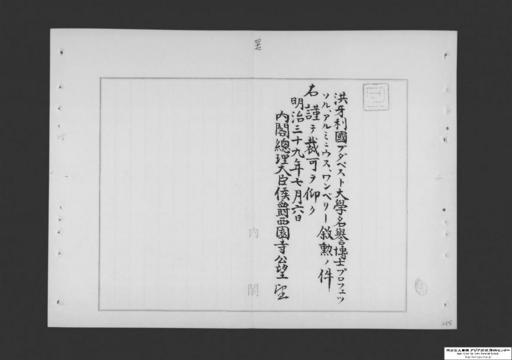 洪牙利國ブダペスト大學名譽博士プロフェッ
ソル、アルミニウス、ワンベリー敍勲ノ件
右謹テ裁可ヲ仰ク
明治三十九年七月六日
内閣總理大臣侯爵西園寺公望
内閣